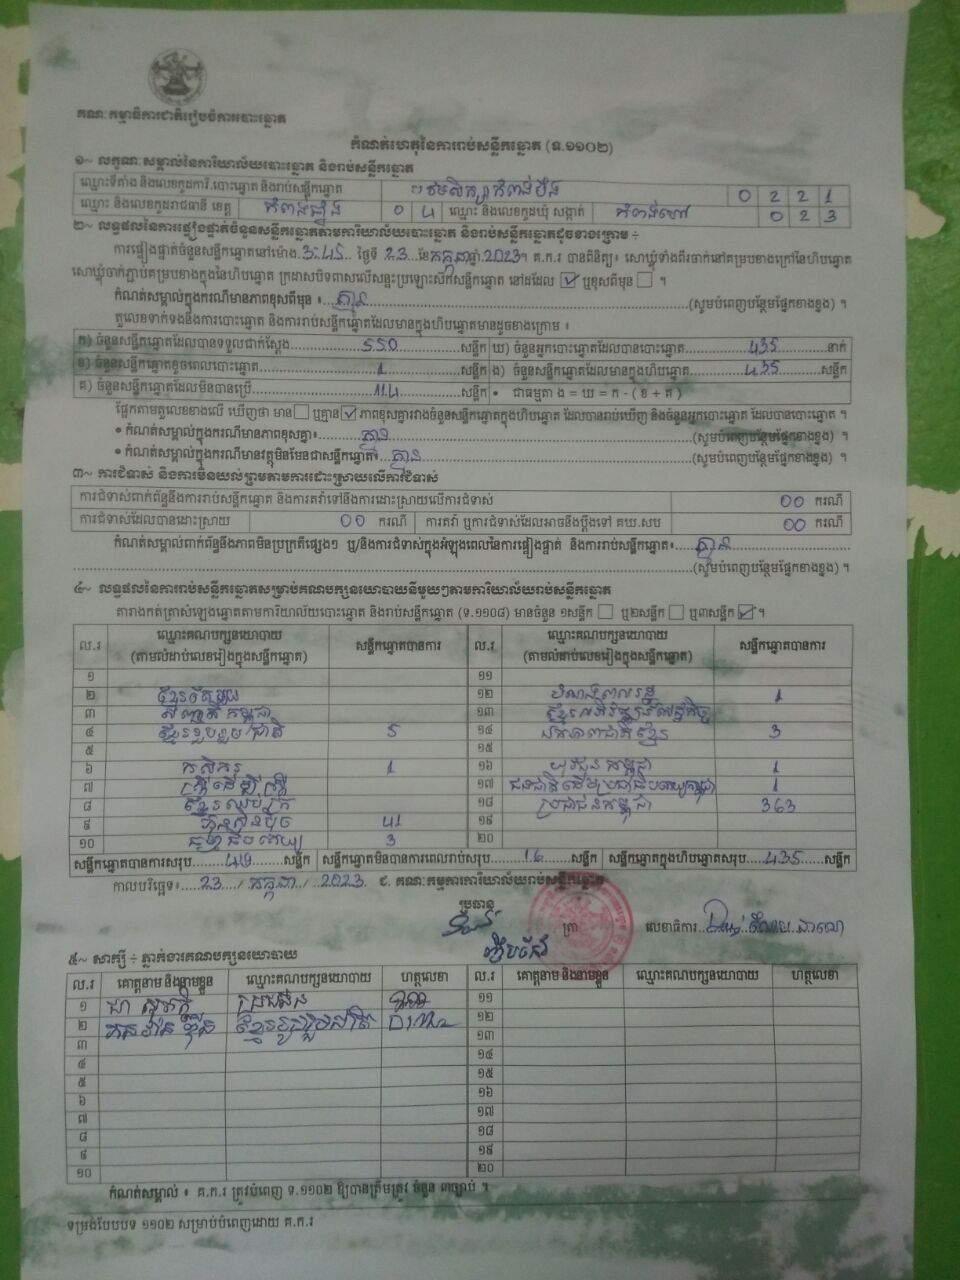 គណៈកម្មាធិការជាតិរៀបចំការបោះឆ្នោត
កំណត់ហេតុនៃការរាប់សន្លឹកឆ្នោត (ទ.១១០២)
១~ លក្ខណៈសម្គាល់នៃការិយាល័យបោះឆ្នោត និងរាប់សន្លឹកឆ្នោត
ឈ្មោះទីតាំង និងលេខកូដការិ.បោះឆ្នោត និងរាប់សន្លឹកឆ្នោត 0 2 2 1
ឈ្មោះ និងលេខកូដរាជធានី ខេត្ត កំពង់ឆ្នាំង 0 4 ឈ្មោះ និងលេខកូដឃុំ សង្កាត់ កំពង់ហៅ 0 2 3
២~ លទ្ធផលនៃការផ្ទៀងផ្ទាត់ចំនួនសន្លឹកឆ្នោតតាមការិយាល័យបោះឆ្នោត និងរាប់សន្លឹកឆ្នោតដូចខាងក្រោម ÷
ការផ្ទៀងផ្ទាត់ចំនួនសន្លឹកឆ្នោតនៅម៉ោង 3:45 ថ្ងៃទី 23 ខែ កក្កដា ឆ្នាំ 2023។ គ.ក.រ បានពិនិត្យ៖ សោឃ្លុំទាំងពីរចាក់នៅគម្របខាងក្រៅនៃហិបឆ្នោត
សោឃ្លុំចាក់ភ្ជាប់គម្របខាងក្នុងនៃហិបឆ្នោត ក្រដាសបិទពាសលើសន្ទះប្រឡោះស៊កសន្លឹកឆ្នោត នៅដដែល ☑ ឬខុសពីមុន ☐ ។
កំណត់សម្គាល់ក្នុងករណីមានភាពខុសពីមុន ៖ គ្មាន (សូមបំពេញបន្ថែមផ្នែកខាងខ្នង) ។
តួលេខទាក់ទងនឹងការបោះឆ្នោត និងការរាប់សន្លឹកឆ្នោតដែលមានក្នុងហិបឆ្នោតមានដូចខាងក្រោម ៖
ក) ចំនួនសន្លឹកឆ្នោតដែលបានទទួលជាក់ស្តែង 550 សន្លឹក ឃ) ចំនួនអ្នកបោះឆ្នោតដែលបានបោះឆ្នោត 435 នាក់
ខ) ចំនួនសន្លឹកឆ្នោតខូចពេលបោះឆ្នោត 1 សន្លឹក ង) ចំនួនសន្លឹកឆ្នោតដែលមានក្នុងហិបឆ្នោត 435 សន្លឹក
គ) ចំនួនសន្លឹកឆ្នោតដែលមិនបានប្រើ 114 សន្លឹក • ជាធម្មតា ង = ឃ = ក - ( ខ + គ )
ផ្អែកតាមតួលេខខាងលើ ឃើញថា មាន ☐ ឬគ្មាន ☑ ភាពខុសគ្នារវាងចំនួនសន្លឹកឆ្នោតក្នុងហិបឆ្នោត ដែលបានរាប់ឃើញ និងចំនួនអ្នកបោះឆ្នោត ដែលបានបោះឆ្នោត ។
• កំណត់សម្គាល់ក្នុងករណីមានភាពខុសគ្នា៖ គ្មាន (សូមបំពេញបន្ថែមផ្នែកខាងខ្នង) ។
• កំណត់សម្គាល់ក្នុងករណីមានវត្ថុមិនមែនជាសន្លឹកឆ្នោត៖ គ្មាន (សូមបំពេញបន្ថែមផ្នែកខាងខ្នង) ។
៣~ ការជំទាស់ និងការមិនយល់ព្រមតាមការដោះស្រាយលើការជំទាស់
ការជំទាស់ពាក់ព័ន្ធនឹងការរាប់សន្លឹកឆ្នោត និងការតវ៉ាទៅនឹងការដោះស្រាយលើការជំទាស់ 00 ករណី
ការជំទាស់ដែលបានដោះស្រាយ 00 ករណី ការតវ៉ា ឬការជំទាស់ដែលអាចនឹងប្តឹងទៅ គឃ.សប 00 ករណី
កំណត់សម្គាល់ពាក់ព័ន្ធនឹងភាពមិនប្រក្រតីផ្សេងៗ ឬ/និងការជំទាស់ក្នុងអំឡុងពេលនៃការផ្ទៀងផ្ទាត់ និងការរាប់សន្លឹកឆ្នោត៖ គ្មាន
(សូមបំពេញបន្ថែមផ្នែកខាងខ្នង) ។
៤~ លទ្ធផលនៃការរាប់សន្លឹកឆ្នោតសម្រាប់គណបក្សនយោបាយនីមួយៗតាមការិយាល័យរាប់សន្លឹកឆ្នោត
តារាងកត់ត្រាសំឡេងឆ្នោតតាមការិយាល័យបោះឆ្នោត និងរាប់សន្លឹកឆ្នោត (ទ.១១០៨) មានចំនួន ១សន្លឹក ☐ ឬ២សន្លឹក ☐ ឬ៣សន្លឹក ☑ ។
ល.រ ឈ្មោះគណបក្សនយោបាយ (តាមលំដាប់លេខរៀងក្នុងសន្លឹកឆ្នោត) សន្លឹកឆ្នោតបានការ ល.រ ឈ្មោះគណបក្សនយោបាយ (តាមលំដាប់លេខរៀងក្នុងសន្លឹកឆ្នោត) សន្លឹកឆ្នោតបានការ
១ ១១
២ ១២ 1
៣ ១៣
៤ ខ្មែររួបរួមជាតិ 5 ១៤ ឯកភាពជាតិខ្មែរ 3
៥ ១៥
៦ កសិករ 1 ១៦ យុវជនកម្ពុជា 1
៧ ស្ត្រីដើម្បីស្ត្រី ១៧ 1
៨ ខ្មែរឈប់ក្រ ១៨ ប្រជាជនកម្ពុជា 363
៩ ហ្វ៊ុនស៊ិនប៉ិច 41 ១៩
១០ 3 ២០
សន្លឹកឆ្នោតបានការសរុប 419 សន្លឹក សន្លឹកឆ្នោតមិនបានការពេលរាប់សរុប 16 សន្លឹក សន្លឹកឆ្នោតក្នុងហិបឆ្នោតសរុប 435 សន្លឹក
កាលបរិច្ឆេទ៖ 23 / កក្កដា / 2023 ជ. គណៈកម្មការការិយាល័យរាប់សន្លឹកឆ្នោត
ប្រធាន
ត្រា លេខាធិការ
៥~ សាក្សី ÷ ភ្នាក់ងារគណបក្សនយោបាយ
ល.រ គោត្តនាម និងនាមខ្លួន ឈ្មោះគណបក្សនយោបាយ ហត្ថលេខា ល.រ គោត្តនាម និងនាមខ្លួន ឈ្មោះគណបក្សនយោបាយ ហត្ថលេខា
១ ១១
២ ខ្មែររួបរួមជាតិ ១២
៣ ១៣
៤ ១៤
៥ ១៥
៦ ១៦
៧ ១៧
៨ ១៨
៩ ១៩
១០ ២០
កំណត់សម្គាល់ ៖ គ.ក.រ ត្រូវបំពេញ ទ.១១០២ ឱ្យបានត្រឹមត្រូវ ចំនួន ៣ច្បាប់ ។
ទម្រង់បែបបទ ១១០២ សម្រាប់បំពេញដោយ គ.ក.រ